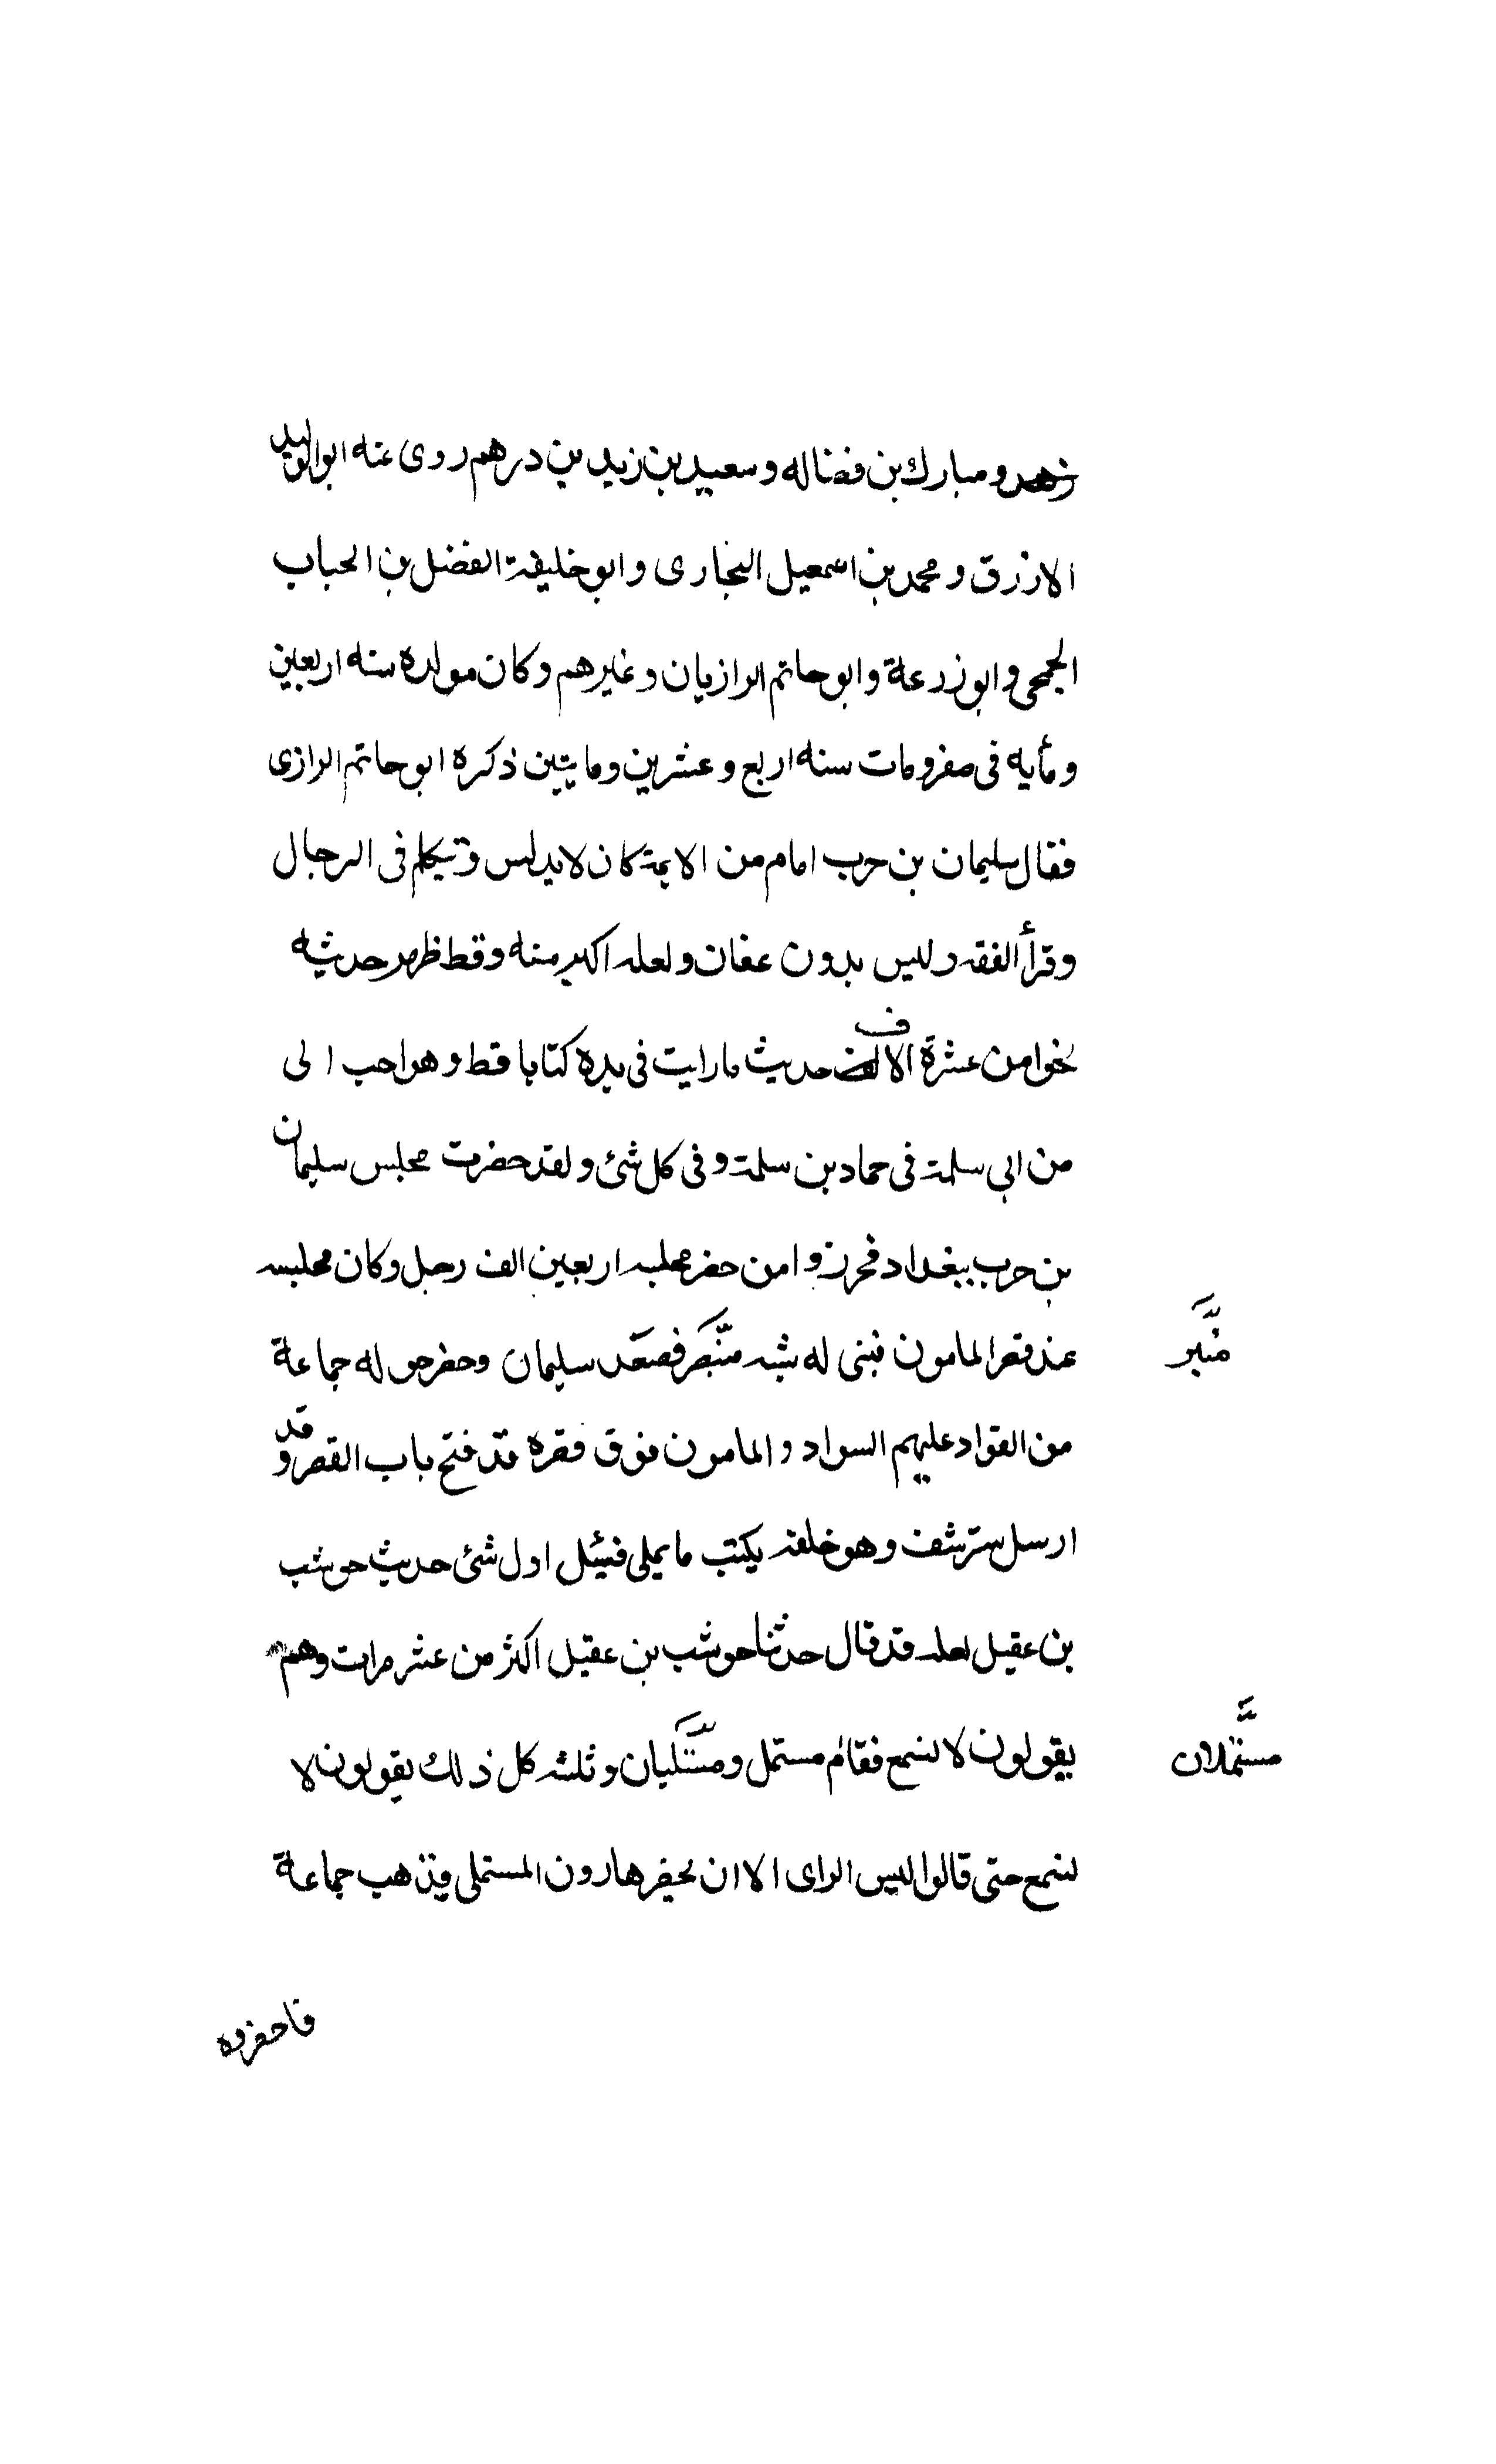 ومبارك بن فضاله وسعيد بن زيد بن درهم روى عنه ابو الوليد
الازرق ومحمد بن اسمعيل البخارى وابو خليفة الفضل بن الحباب
الجمحى وابو زرعة وابو حاتم الرازيان وغيرهم وكان مولده سنه اربعين
ومأيه فى صفر ومات سنه اربع وعشرين ومايتين ذكره ابو حاتم الرازى
فقال سليمان بن حرب امام من الايمة كان لا يدلس ويتكلم فى الرجال
وقرأ الفقه وليس بدون عفان ولعله اكبر منه وقط ظهر حديثه
نحوا من عشرة الاف حديث ما رايت فى يده كتابا قط وهو احب الى
من ابى سلمة فى حماد بن سلمة وفى كل شئ ولقد حضرت مجلس سليمان
بن حرب ببغداد فحرزوا من حضر مجلسه اربعين الف رجل وكان مجلسه
عند قصر المامون فبنى له شبه منبر فصعد سليمان وحضر حوله جماعة
منبر
من القواد عليهم السواد والمامون فوق قصره قد فتح باب القصر وقد
ارسل ستر شف وهو خلفه يكتب ما يملى فسئل اول شئ حديث حوشب
بن عقيل لعله قد قال حدثنا حوشب بن عقيل اكثر من عشر مرات وهم
يقولون لا نسمع فقام مستمل ومستمليان وثلثه كل ذلك يقولون لا
مستملان
نسمع حتى قالوا ليس الراى الا ان يحضر هارون المستملى فذهب جماعة
فاحضروه